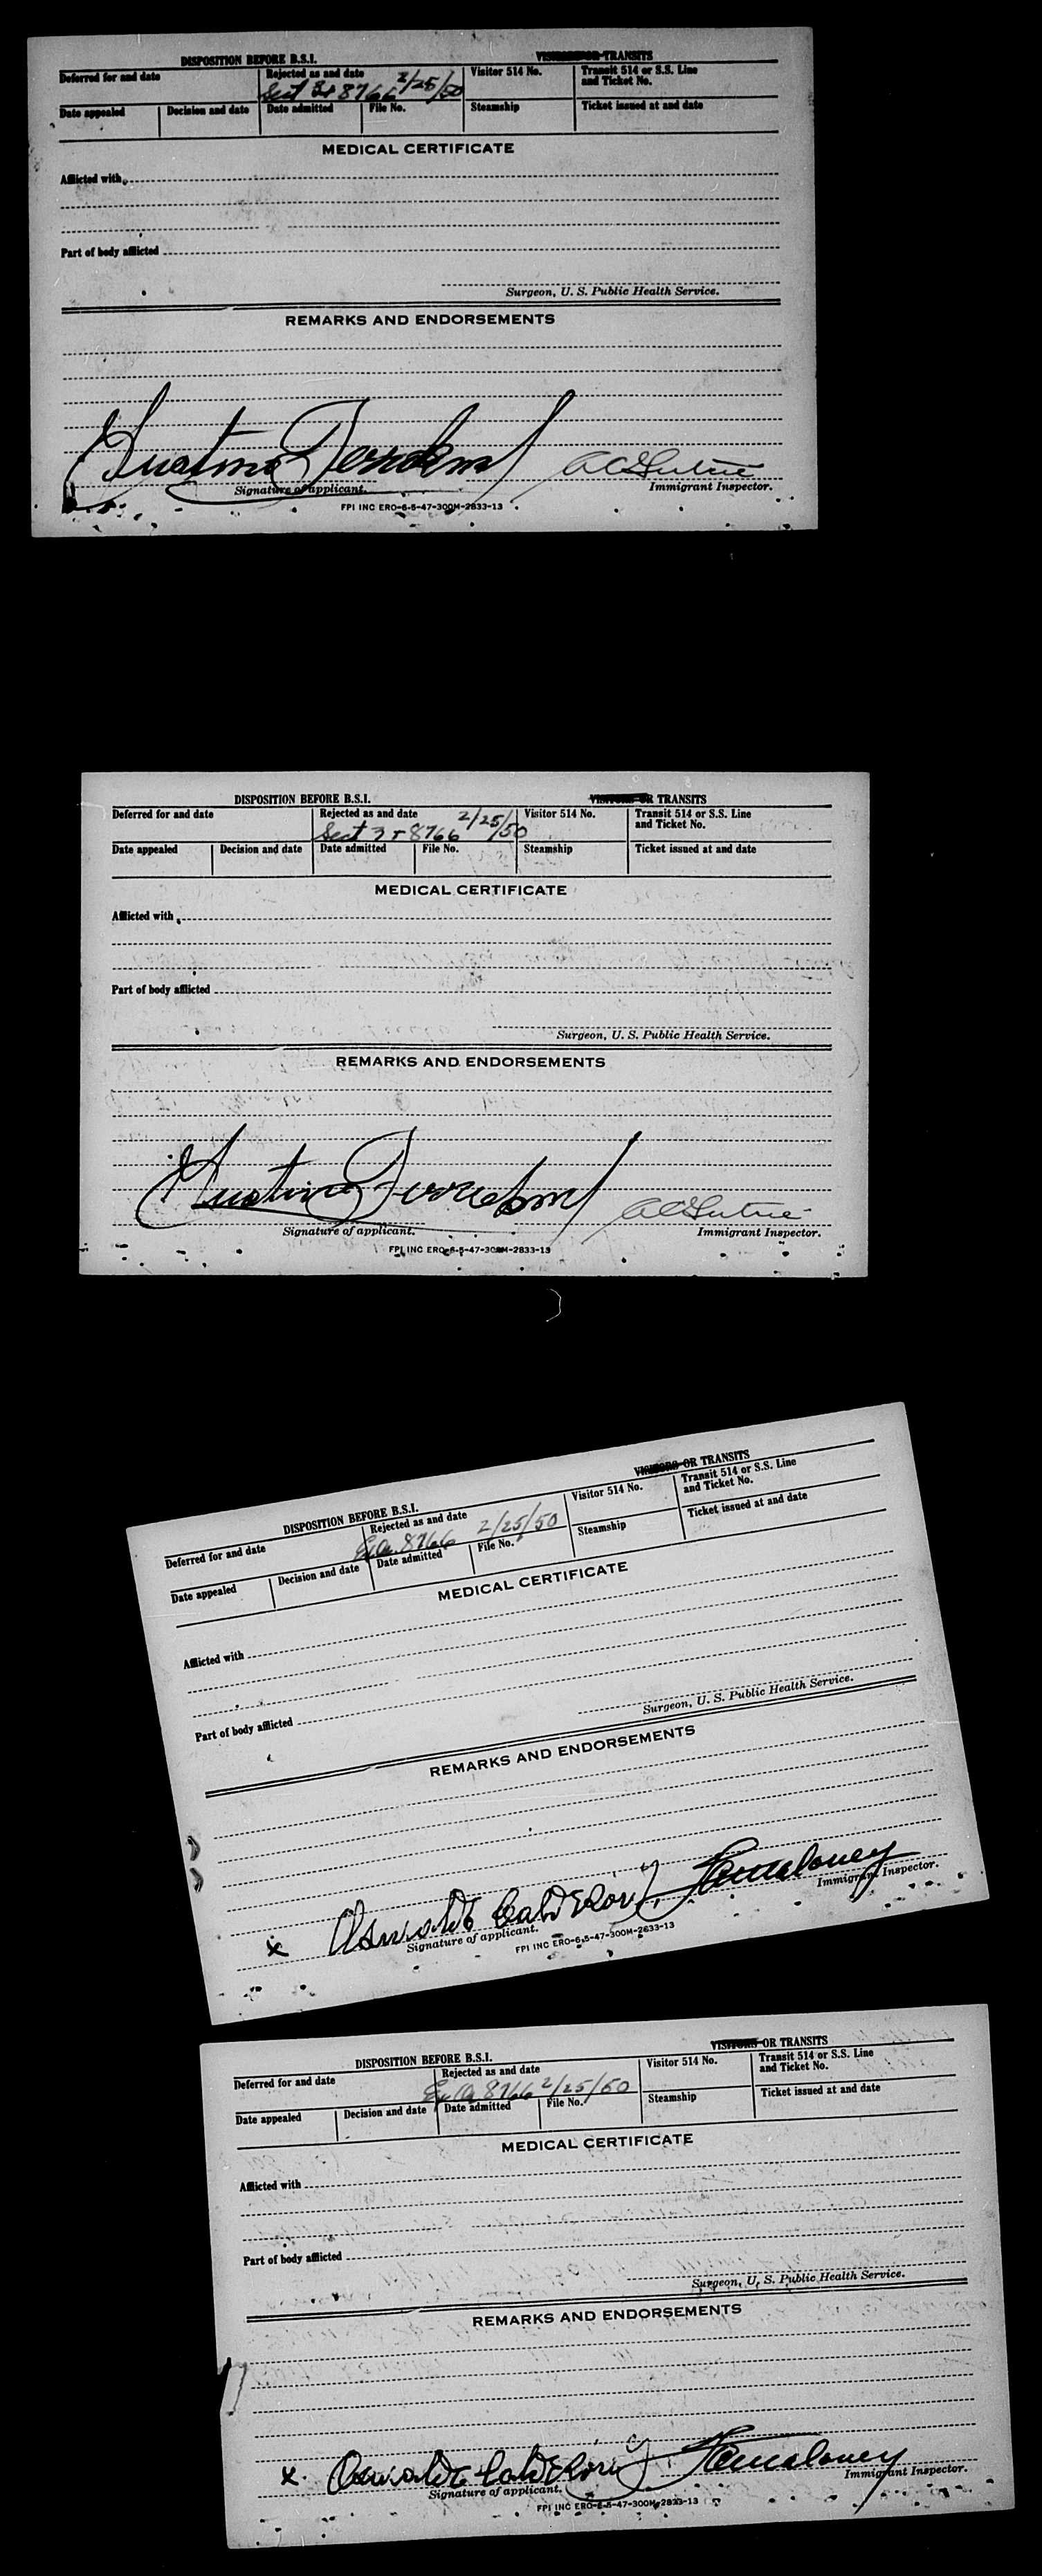 DISPOSITION BEFORE B.S.I. OR TRANSITS
Deferred for and date Rejected as and date Visitor 514 No. Transit 514 or S.S. Line
and Ticket No.
Sect 3+8766 2/25/50
Date appealed Decision and date Date admitted File No. Steamship Ticket issued at and date
MEDICAL CERTIFICATE
Afflicted with
Part of body afflicted
Surgeon, U. S. Public Health Service.
REMARKS AND ENDORSEMENTS
Signature of applicant. Immigrant Inspector.
FPI INC ERO-6-5-47-300M-2833-13
DISPOSITION BEFORE B.S.I. VISITORS OR TRANSITS
Deferred for and date Rejected as and date Visitor 514 No. Transit 514 or S.S. Line
and Ticket No.
Sect 3+8766 2/25/50
Date appealed Decision and date Date admitted File No. Steamship Ticket issued at and date
MEDICAL CERTIFICATE
Afflicted with
Part of body afflicted
Surgeon, U. S. Public Health Service.
REMARKS AND ENDORSEMENTS
Signature of applicant. Immigrant Inspector.
FPI INC ERO-6-5-47-300M-2833-13
DISPOSITION BEFORE B.S.I. VISITORS OR TRANSITS
Deferred for and date Rejected as and date Visitor 514 No. Transit 514 or S.S. Line
and Ticket No.
8766 2/25/50
Date appealed Decision and date Date admitted File No. Steamship Ticket issued at and date
MEDICAL CERTIFICATE
Afflicted with
Part of body afflicted
Surgeon, U. S. Public Health Service.
REMARKS AND ENDORSEMENTS
x Oswaldo Calderon y
Signature of applicant. Immigrant Inspector.
FPI INC ERO-6-5-47-300M-2833-13
DISPOSITION BEFORE B.S.I. VISITORS OR TRANSITS
Deferred for and date Rejected as and date Visitor 514 No. Transit 514 or S.S. Line
and Ticket No.
8766 2/25/50
Date appealed Decision and date Date admitted File No. Steamship Ticket issued at and date
MEDICAL CERTIFICATE
Afflicted with
Part of body afflicted
Surgeon, U. S. Public Health Service.
REMARKS AND ENDORSEMENTS
x. Oswaldo Calderon y
Signature of applicant. Immigrant Inspector.
FPI INC ERO-6-5-47-300M-2833-13